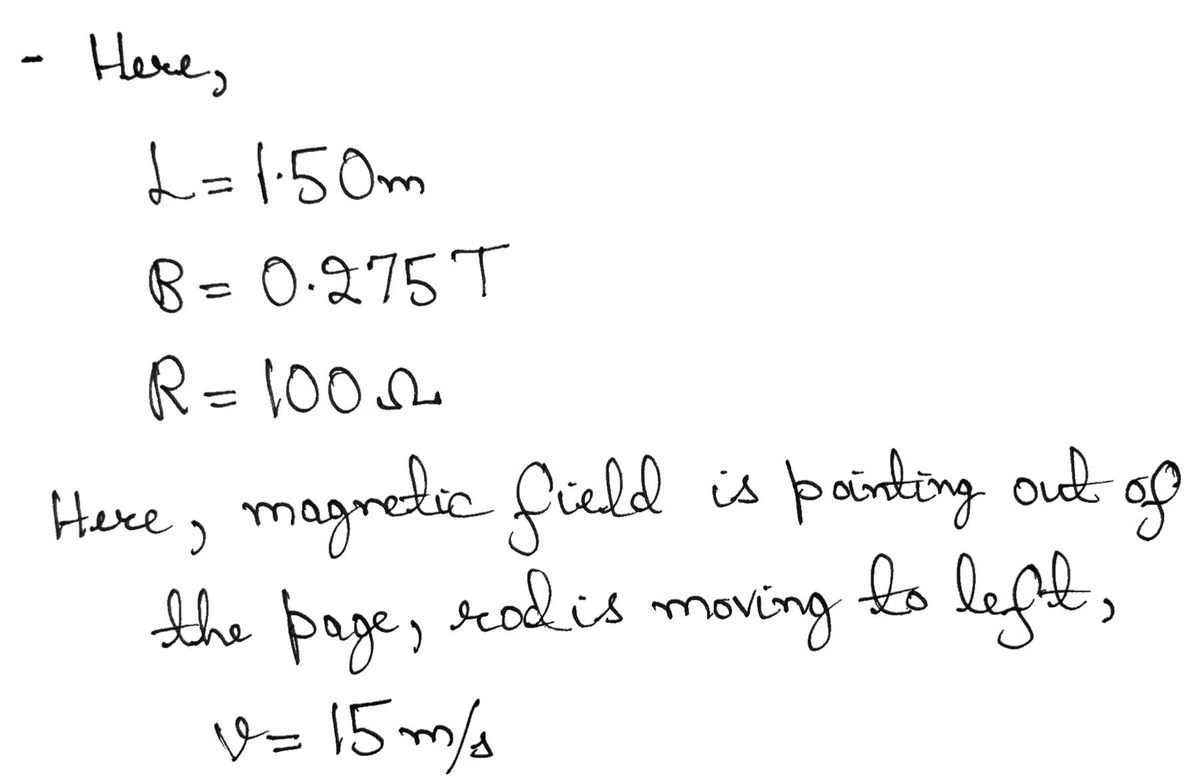 - Here,
L = 1.50m
B = 0.275 T
R = 100 Ω
Here, magnetic field is pointing out of
the page, rod is moving to left,
v = 15 m/s